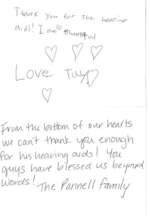 Thank you for the hearing
aids! I am thankful
Love Tay
From the bottom of our hearts
we can't thank you enough
for his hearing aids! You
guys have blessed us beyond
words! The Pannell family